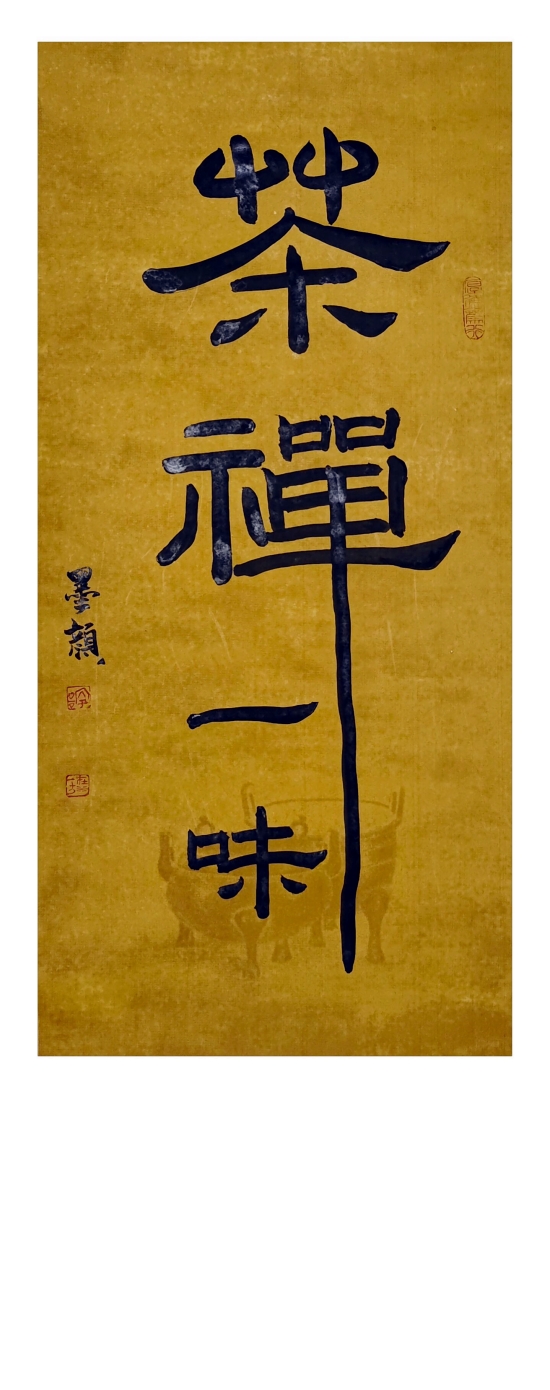 茶禪一味
墨顏